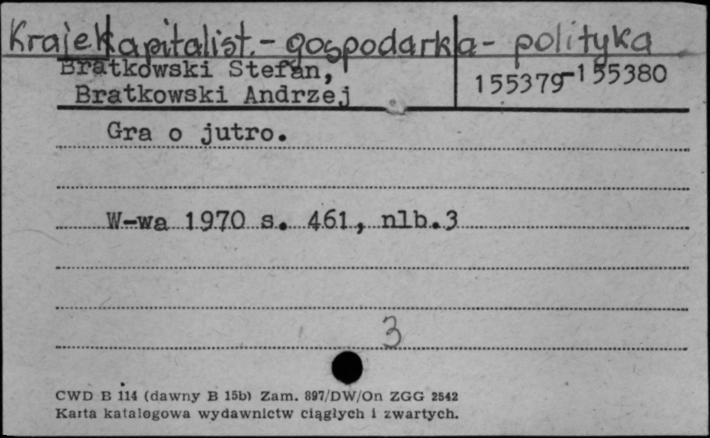 Kraje kapitalist. - gospodarka - polityka
Bratkowski Stefan,
Bratkowski Andrzej
155379-155380
Gra o jutro.
W-wa 1970 s. 461, nlb.3
3
CWD B 114 (dawny B 15b) Zam. 897/DW/On ZGG 2542
Karta katalogowa wydawnictw ciągłych i zwartych.